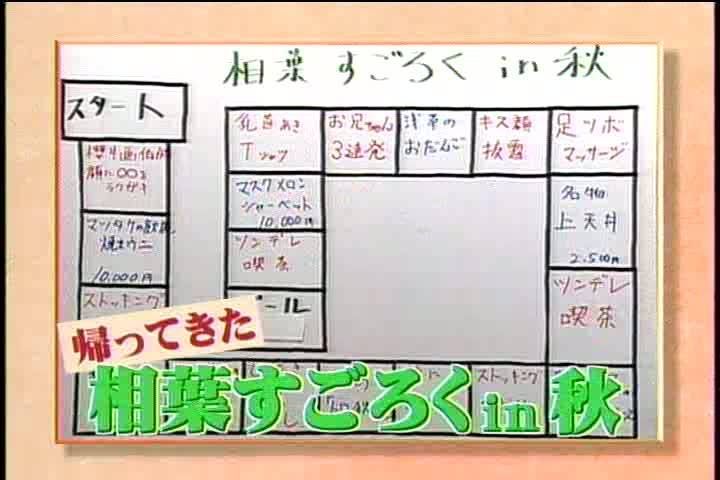 相葉すごろく in 秋
スタート
顔に〇〇を
ラクガキ
10,000円
ストッキング
乳首あき
Tシャツ
お兄ちゃん
3連発
浅草の
おだんご
キス顔
披露
足ツボ
マッサージ
マスクメロン
シャーベット
10,000円
ツンデレ
喫茶
名物
上天丼
2,500円
ツンデレ
喫茶
ストッキング
帰ってきた
相葉すごろくin秋